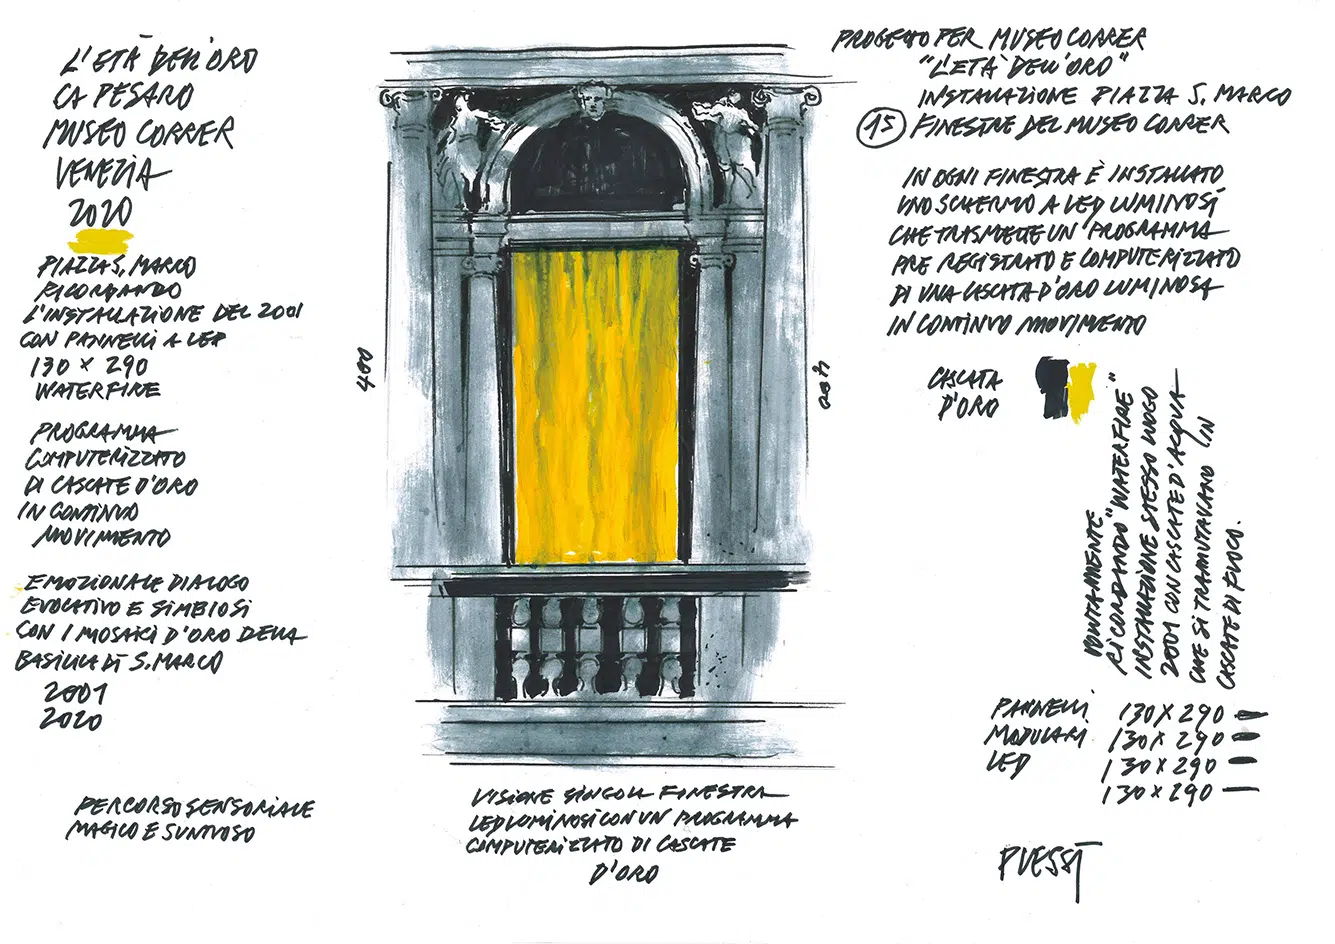 L'ETÀ DELL'ORO
CA PESARO
MUSEO CORRER
VENEZIA
2020
PIAZZA S. MARCO
RICORDANDO
L'INSTALLAZIONE DEL 2001
CON PANNELLI A LED
130 X 290
WATERFIRE
PROGRAMMA
COMPUTERIZZATO
DI CASCATE D'ORO
IN CONTINUO
MOVIMENTO
EMOZIONALE DIALOGO
EVOCATIVO E SIMBIOSI
CON I MOSAICI D'ORO DELLA
BASILICA DI S. MARCO
2001
2020
PERCORSO SENSORIALE
MAGICO E SUNTUOSO
400
400
VISIONE SINGOLA FINESTRA
LED LUMINOSI CON UN PROGRAMMA
COMPUTERIZZATO DI CASCATE
D'ORO
PROGETTO PER MUSEO CORRER
"L'ETÀ DELL'ORO"
INSTALLAZIONE PIAZZA S. MARCO
15 FINESTRE DEL MUSEO CORRER
IN OGNI FINESTRA È INSTALLATO
UNO SCHERMO A LED LUMINOSI
CHE TRASMETTE UN PROGRAMMA
PRE REGISTRATO E COMPUTERIZZATO
DI UNA CASCATA D'ORO LUMINOSA
IN CONTINUO MOVIMENTO
CASCATA
D'ORO
RICORDANDO "WATERFIRE"
INSTALLAZIONE STESSO LUOGO
2001 CON CASCATE D'ACQUA
CHE SI TRAMUTAVANO IN
CASCATE DI FUOCO.
PANNELLI 130 X 290
MODULARI 130 X 290
LED 130 X 290
130 X 290
PLESSI